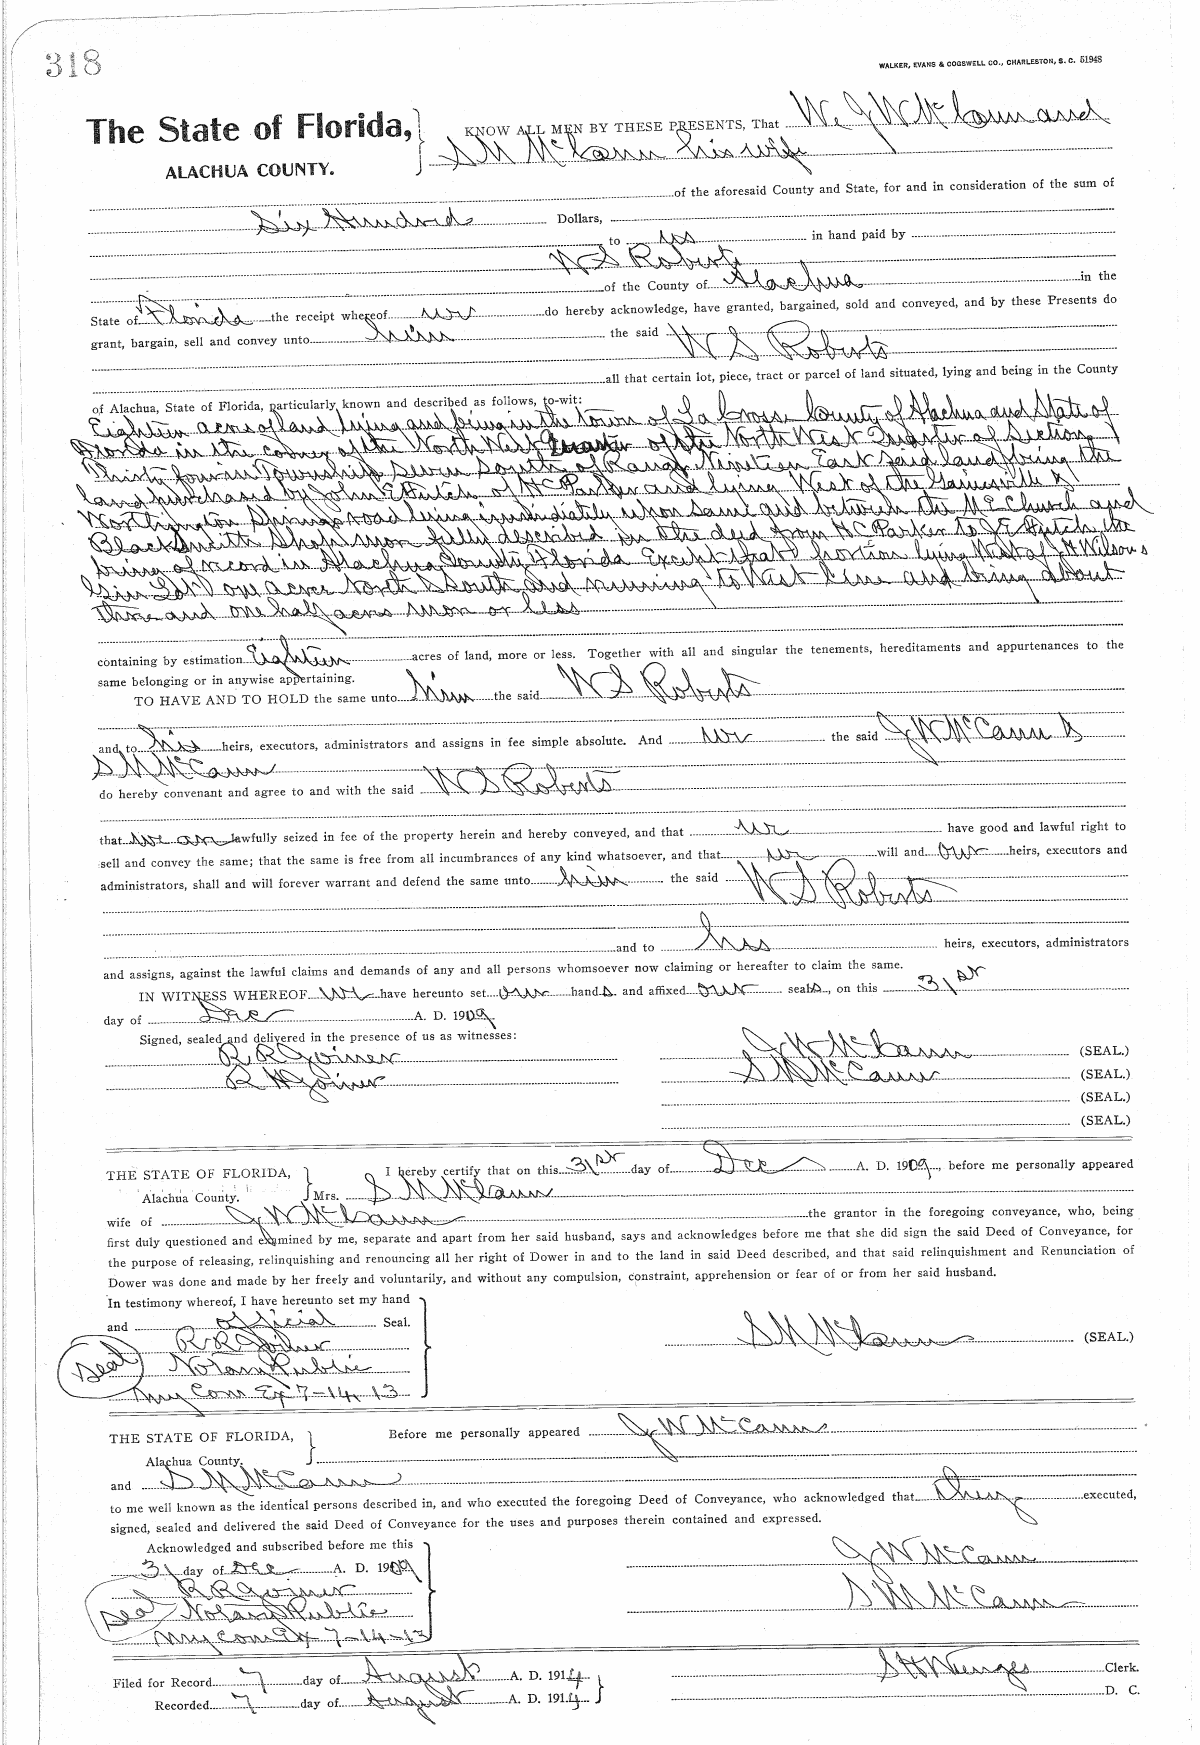 318
WALKER, EVANS & COGSWELL CO., CHARLESTON, S. C. 51948
The State of Florida, KNOW ALL MEN BY THESE PRESENTS, That We J W McCann and
ALACHUA COUNTY. S M McCann his wife
of the aforesaid County and State, for and in consideration of the sum of
Six Hundred Dollars,
to us in hand paid by
W S Roberts
of the County of Alachua in the
State of Florida the receipt whereof we do hereby acknowledge, have granted, bargained, sold and conveyed, and by these Presents do
grant, bargain, sell and convey unto him the said W S Roberts
all that certain lot, piece, tract or parcel of land situated, lying and being in the County
of Alachua, State of Florida, particularly known and described as follows, to-wit:
Eighteen acres of land lying and being in the town of La Crosse County of Alachua and State of
Florida in the corner of the North West Quarter of the North West Quarter of Section
Thirty four in Township Seven South of Range Nineteen East said land being the
land purchased by John E Futch of H C Parker and lying West of the Gainesville &
Worthington Springs road lying immediately upon same and between the M E Church and
BlackSmith Shop more fully described in the deed from H C Parker to J E Futch the
being of record in Alachua County Florida Except that portion lying West of J H Wilsons
Gin Lot one acre North & South and running to West line and being about
three and one half acres more or less
containing by estimation Eighteen acres of land, more or less. Together with all and singular the tenements, hereditaments and appurtenances to the
same belonging or in anywise appertaining.
TO HAVE AND TO HOLD the same unto him the said W S Roberts
and to his heirs, executors, administrators and assigns in fee simple absolute. And we the said J W McCann &
S M McCann
do hereby convenant and agree to and with the said W S Roberts
that we are lawfully seized in fee of the property herein and hereby conveyed, and that we have good and lawful right to
sell and convey the same; that the same is free from all incumbrances of any kind whatsoever, and that we will and our heirs, executors and
administrators, shall and will forever warrant and defend the same unto him the said W S Roberts
and to his heirs, executors, administrators
and assigns, against the lawful claims and demands of any and all persons whomsoever now claiming or hereafter to claim the same.
IN WITNESS WHEREOF We have hereunto set our hands and affixed our seals, on this 31st
day of Dec A. D. 1909
Signed, sealed and delivered in the presence of us as witnesses:
R R Joiner J W McCann (SEAL.)
R H Joiner S M McCann (SEAL.)
(SEAL.)
(SEAL.)
THE STATE OF FLORIDA, I hereby certify that on this 31st day of Dec A. D. 1909, before me personally appeared
Alachua County. Mrs. S M McCann
wife of J W McCann the grantor in the foregoing conveyance, who, being
first duly questioned and examined by me, separate and apart from her said husband, says and acknowledges before me that she did sign the said Deed of Conveyance, for
the purpose of releasing, relinquishing and renouncing all her right of Dower in and to the land in said Deed described, and that said relinquishment and Renunciation of
Dower was done and made by her freely and voluntarily, and without any compulsion, constraint, apprehension or fear of or from her said husband.
In testimony whereof, I have hereunto set my hand
and official Seal.
R R Joiner S M McCann (SEAL.)
Seal Notary Public
My Com Ex 7-14-13
THE STATE OF FLORIDA, Before me personally appeared J W McCann
Alachua County.
and S M McCann
to me well known as the identical persons described in, and who executed the foregoing Deed of Conveyance, who acknowledged that they executed,
signed, sealed and delivered the said Deed of Conveyance for the uses and purposes therein contained and expressed.
Acknowledged and subscribed before me this
31 day of Dec A. D. 1909 J W McCann
R R Joiner
Seal Notary Public S M McCann
My Com Ex 7-14-13
Filed for Record 7 day of August A. D. 1914 S H Wienges Clerk.
Recorded 7 day of August A. D. 1914 D. C.